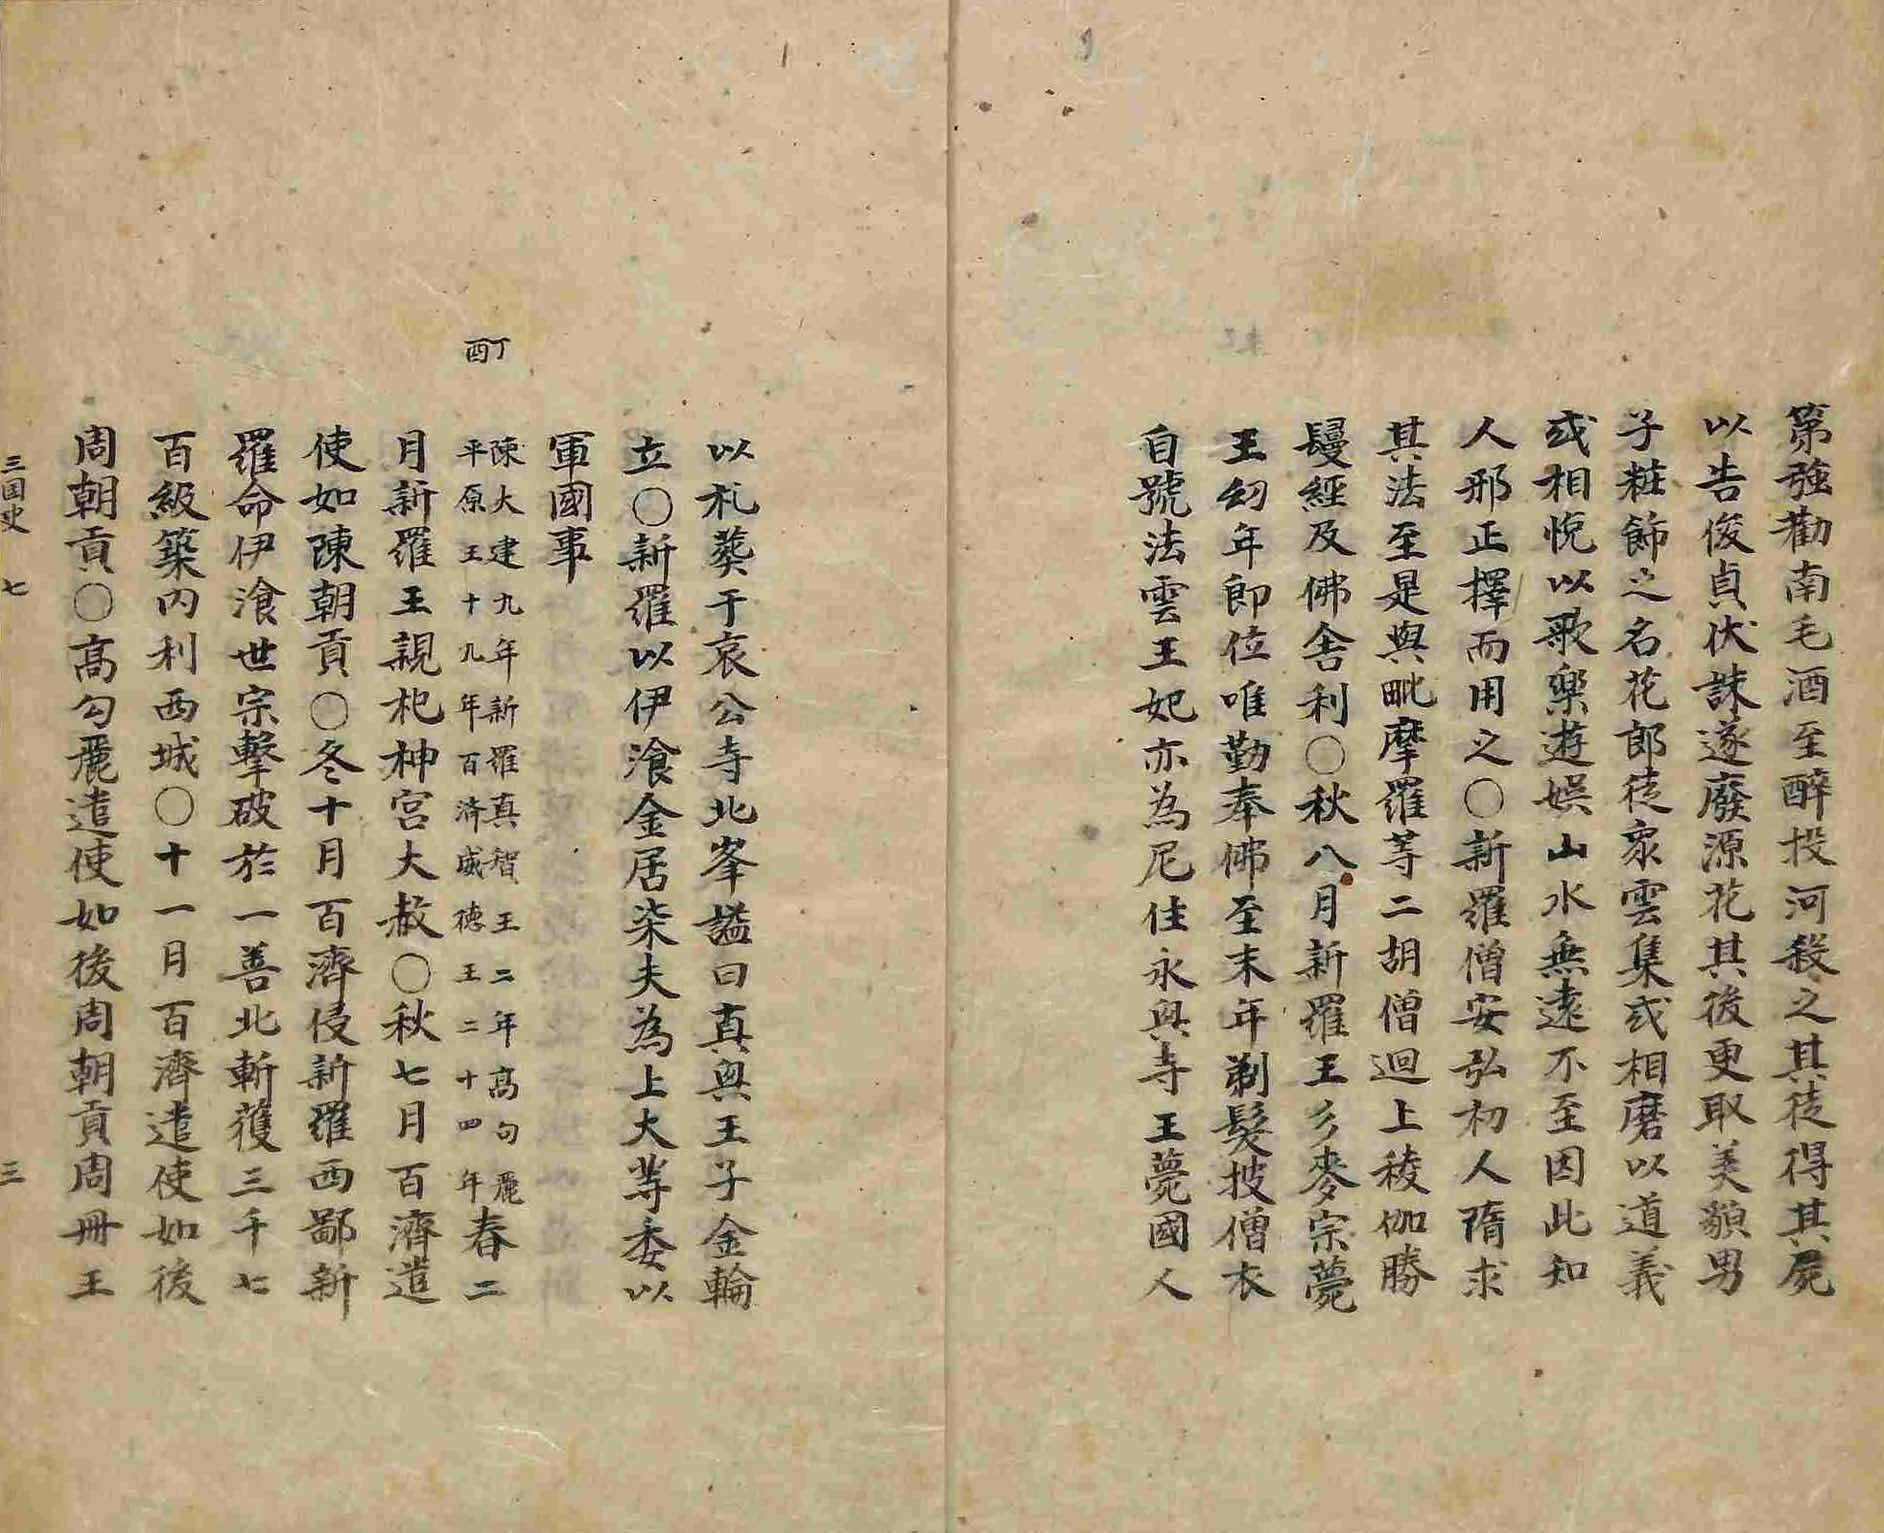 第強勸南毛酒至醉投河殺之其徒得其屍
以告俊貞伏誅遂廢源花其後更取美㒵男
子粧飾之名花郎徒衆雲集或相磨以道義
或相悅以歌樂遊娛山水無遠不至因此知
人邪正擇而用之〇新羅僧安弘初入隋求
其法至是與毗摩羅等二胡僧迴上稜伽勝
鬘經及佛舍利〇秋八月新羅王彡麥宗薨
王幼年卽位唯勤奉佛至末年剃髮披僧衣
自號法雲王妃亦為尼住永興寺王薨國人
以礼葬于哀公寺北峯謚曰真興王子金輪
立〇新羅以伊飡金居柒夫為上大等委以
軍國事
丁酉
陳大建九年新羅真智王二年高句麗
平原王十九年百濟威德王二十四年
春二
月新羅王親祀神宮大赦〇秋七月百濟遣
使如陳朝貢〇冬十月百濟侵新羅西鄙新
羅命伊飡世宗擊破於一善北斬獲三千七
百級築內利西城〇十一月百濟遣使如後
周朝貢〇高勾麗遣使如後周朝貢周冊王
三国史 七 三